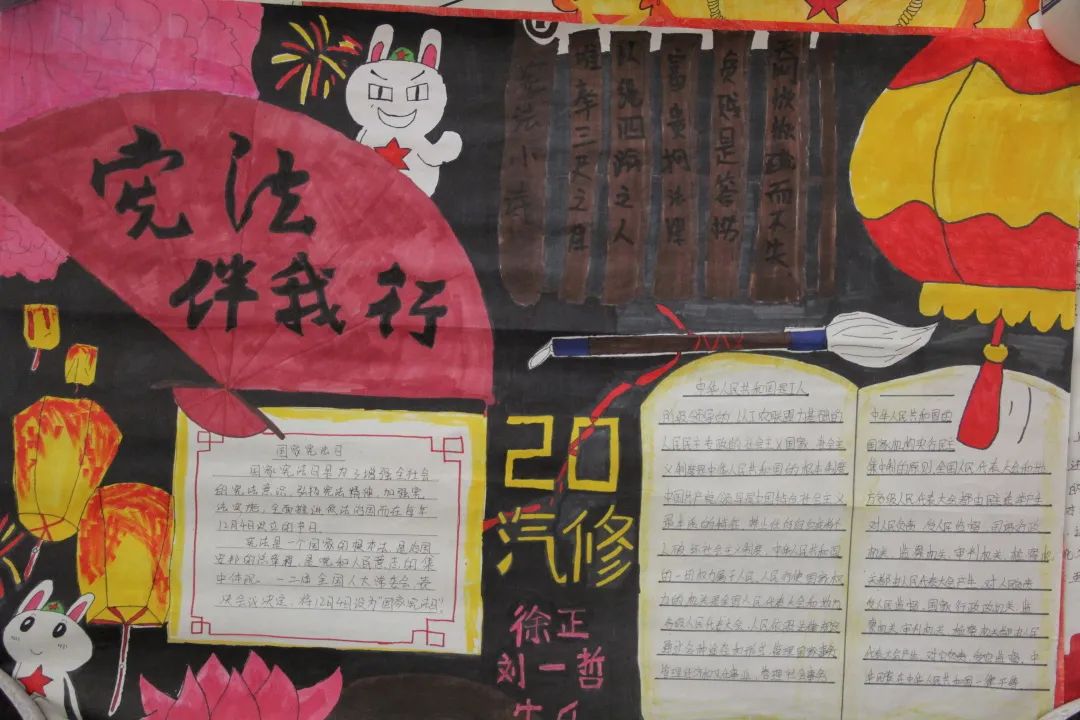 宪法
伴我行
宪法小诗
明孝三尺之
以绳四海之人
富贵拘法律
贫贱是
而不失
国家宪法日
国家宪法日是为了增强全社会
的宪法意识，弘扬宪法精神，加强宪
法实施，全面推进依法治国而在每年
12月4日设立的节日。
宪法是一个国家的根本法，是治国
安邦的总章程，是党和人民意志的集
中体现。
决会议决定，将12月4日设为"国家宪法日"
20
汽修
徐正
刘一哲
中华人民共和国是工人
阶级领导的 以工农联盟为基础的
人民民主专政的社会主义国家 社会主
义制度是中华人民共和国的根本制度
中国共产党领导是中国特色社会主义
最本质的特征 禁止任何组织或者个
人破坏社会主义制度，中华人民共和国
的一切权力属于人民，人民行使国家权
力的机关是全国人民代表大会和地方
各级人民代表大会，人民依照法律规定
通过各种途径和形式 管理国家事务
管理经济和文化事业，管理社会事务
中华人民共和国的
国家机构实行民主
集中制的原则 全国人民代表大会和地
方各级人民代表大会都由民主选举产生
对人民负责 受人民监督 国家行政
机关，监察机关，审判机关，检察机
关都由人民代表大会产生，对人民负责
受人民监督，国家行政机关，监
察机关，审判机关，检察机关都由人民
代表大会产生，对它负责 受它监督，中